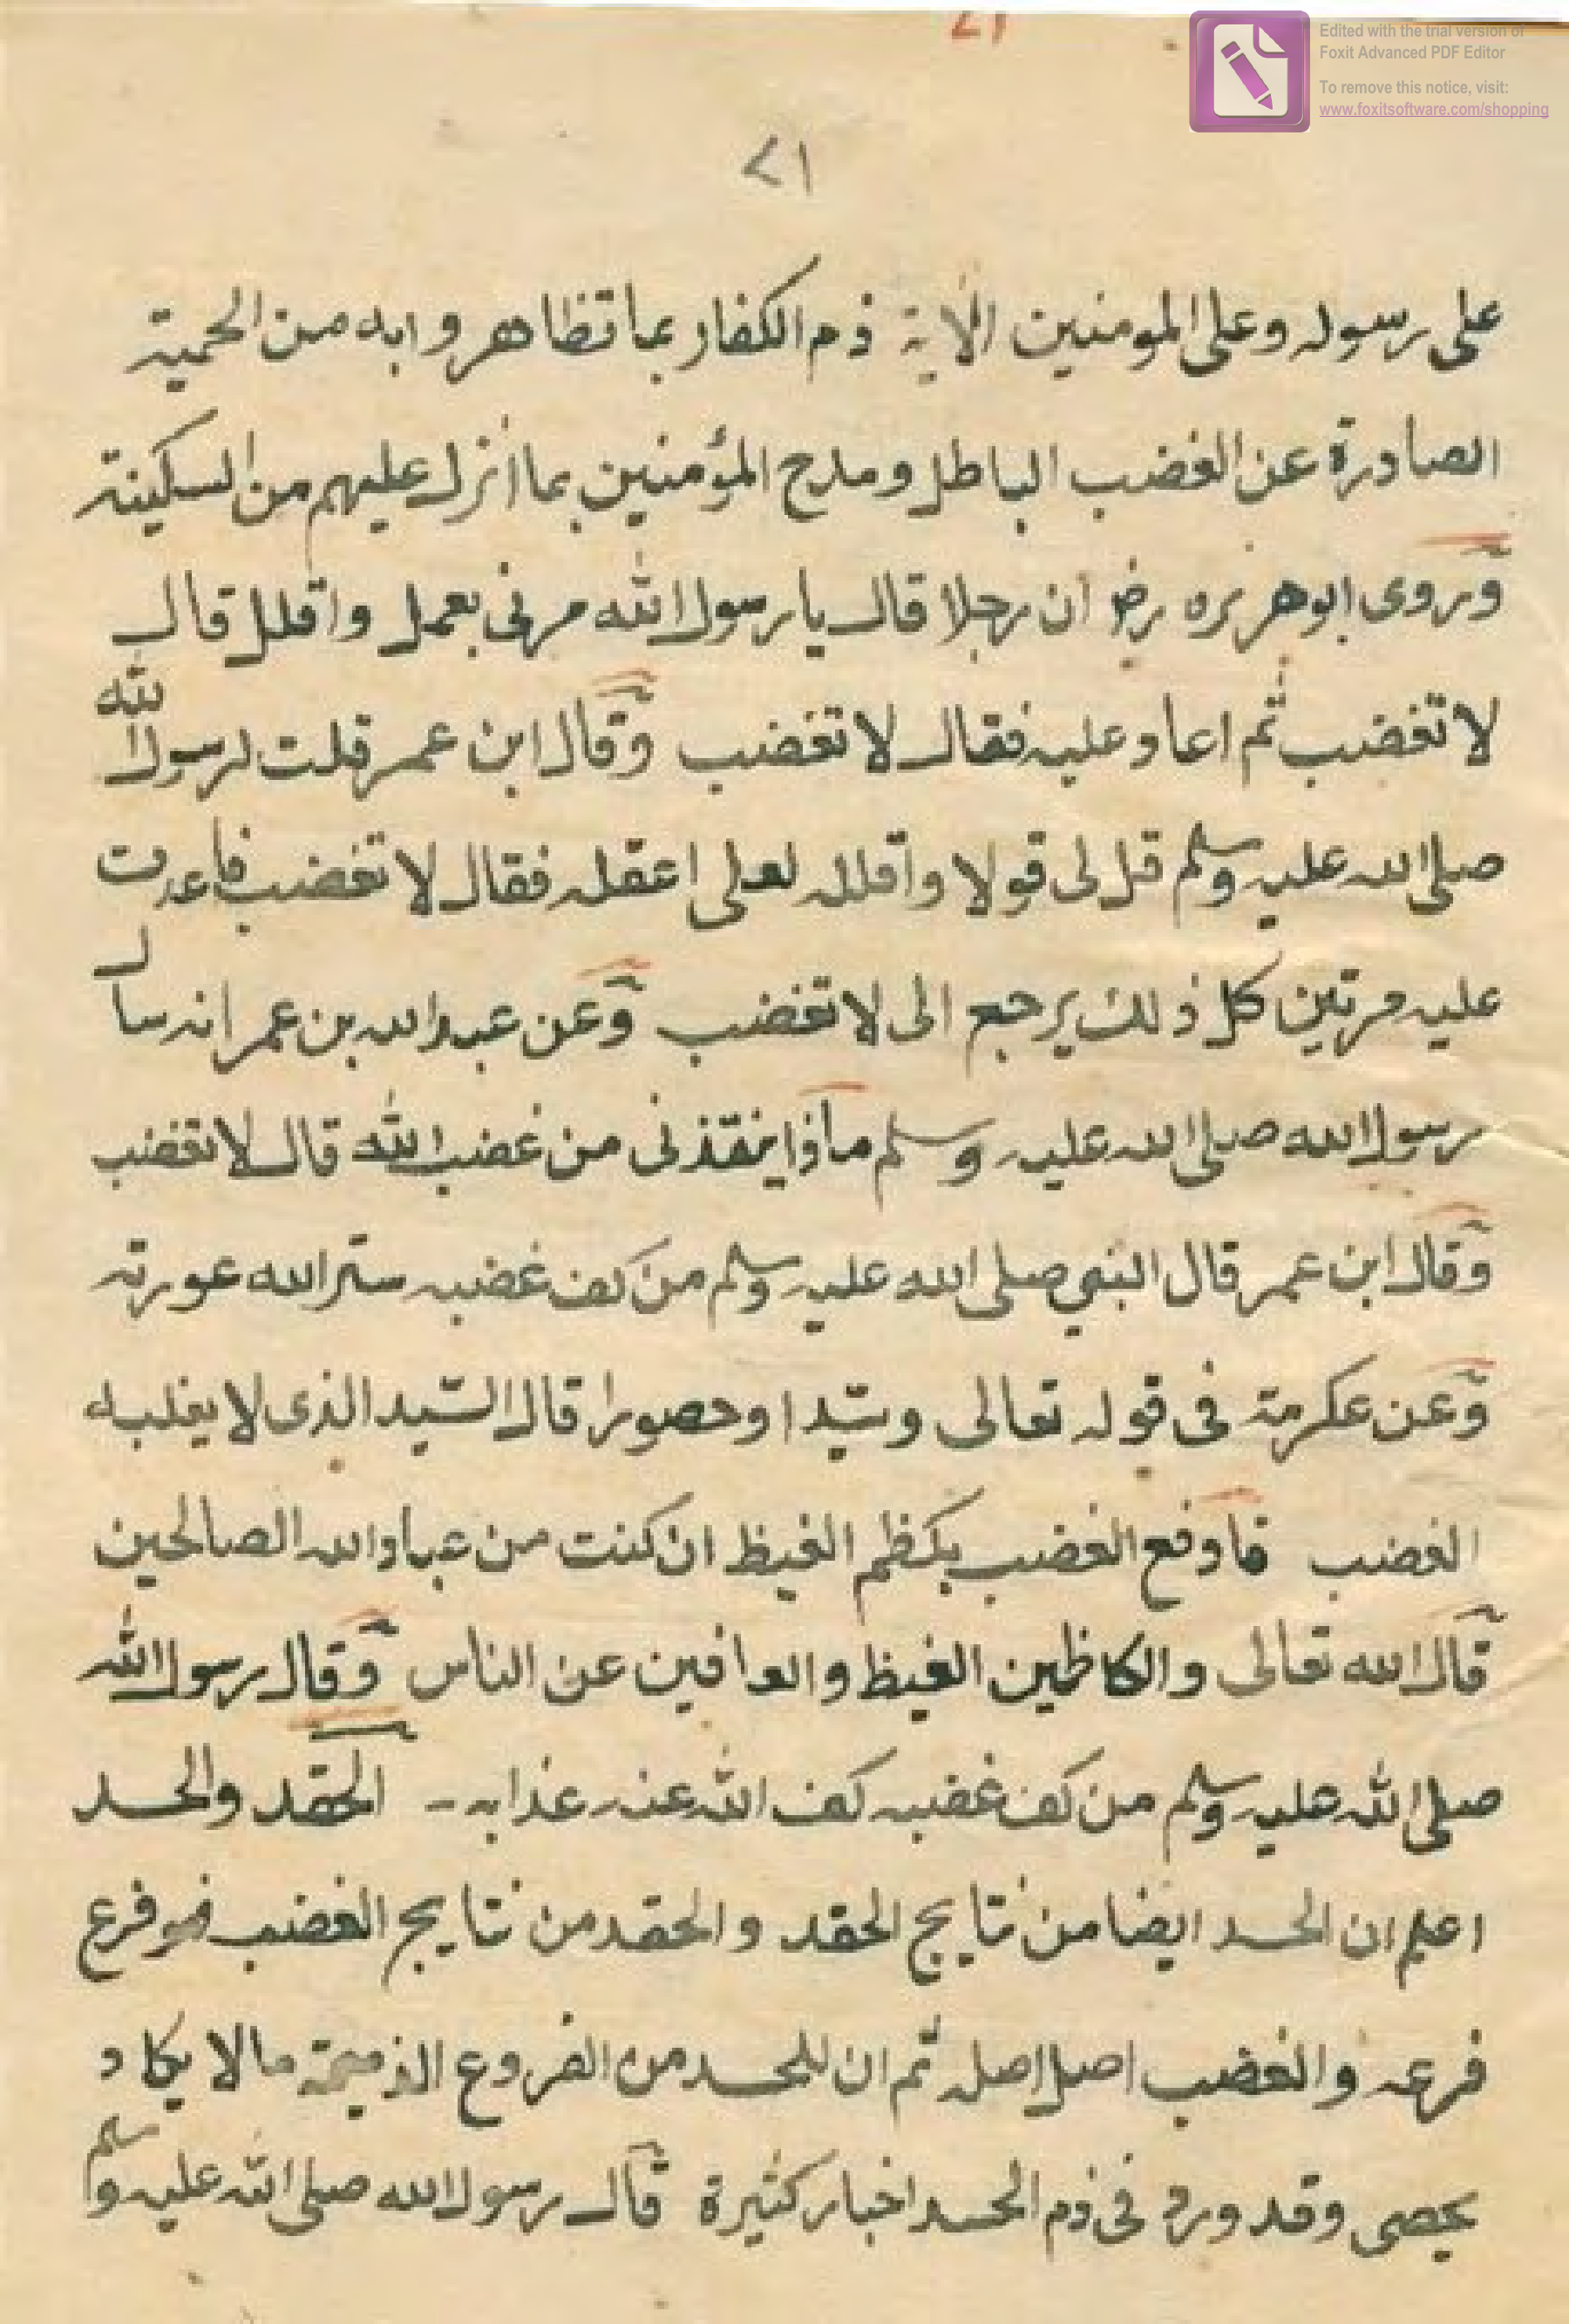 ٢١
Edited with the trial version of
Foxit Advanced PDF Editor
To remove this notice, visit:
www.foxitsoftware.com/shopping
٢١
على رسوله وعلى المومنين الآية ذم الكفار بما تظاهروا به من الحمية
الصادرة عن الغضب الباطل ومدح المؤمنين بما انزل عليهم من السكينة
وروى ابوهريره رض ان رجلا قال يا رسول الله مرنى بعمل واقلل قال
لا تغضب ثم اعاد عليه فقال لا تغضب وقال ابن عمر قلت لرسول الله
صلى الله عليه وسلم قل لى قولا واقلله لعلى اعقله فقال لا تغضب فاعدت
عليه مرتين كل ذلك يرجع الى لا تغضب وعن عبد الله بن عمر انه سال
رسول الله صلى الله عليه وسلم ماذا ينقذنى من غضب الله قال لا تغضب
وقال ابن عمر قال النبي صلى الله عليه وسلم من كف غضبه ستر الله عورته
وعن عكرمة فى قوله تعالى وسيّدا وحصورا قال السّيد الذى لا يغلبه
الغضب فادفع الغضب بكظم الغيظ ان كنت من عباد الله الصالحين
قال الله تعالى والكاظمين الغيظ والعافين عن الناس وقال رسول الله
صلى الله عليه وسلم من كف غضبه كف الله عنه عذابه - الحقد والحسد
اعلم ان الحسد ايضا من نتايج الحقد والحقد من نتايج الغضب فهو فرع
فرعه والغضب اصل اصله ثم ان للحسد من الفروع الذميمة ما لا يكاد
يحصى وقد ورد فى ذم الحسد اخبار كثيرة قال رسول الله صلى الله عليه وسلم